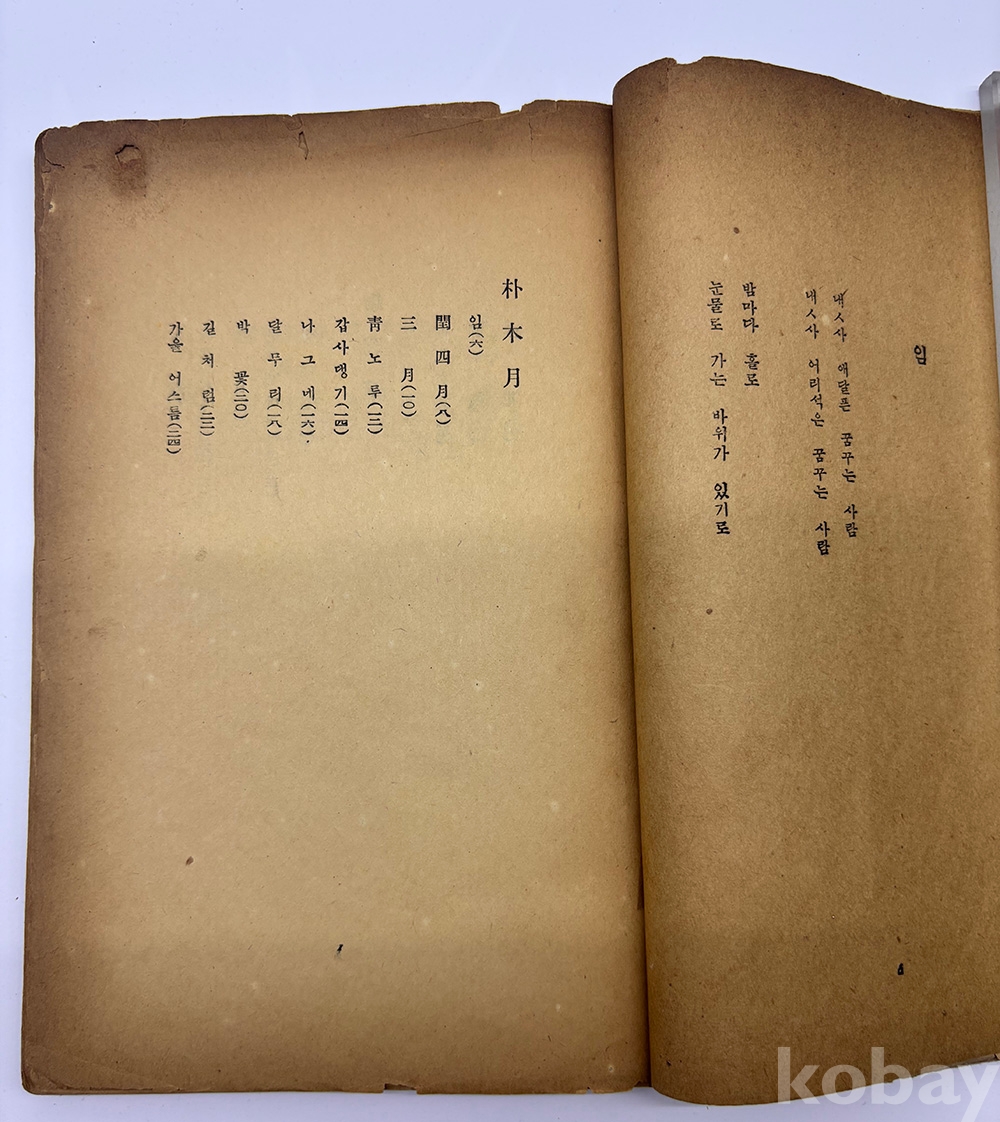 임
내ㅅ사 애달픈 꿈꾸는 사람
내ㅅ사 어리석은 꿈꾸는 사람
밤마다 홀로
눈물로 가는 바위가 있기로
6
朴木月
임(六)
閏四月(八)
三月(一〇)
靑노루(一二)
갑사댕기(一四)
나그네(一六)
달무리(一八)
박꽃(二〇)
길처럼(二二)
가을 어스름(二四)
kobay